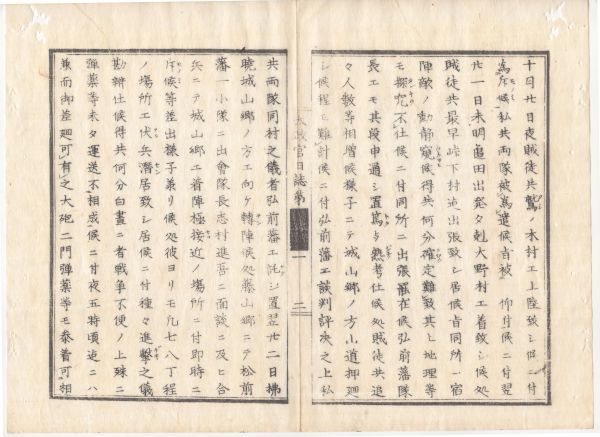 十月廿日夜賊徒共鷲ノ木村エ上陸致シ候ニ付
為斥候私共両隊被為遣候旨被　仰付候ニ付翌
廿一日未明亀田出発夕剋大野村エ着致シ候処
賊徒共最早峠下村迠出張致シ居候旨同所一宿
陣敵ノ動静窺候得共何分確定難致其上地理等
モ探究不仕候ニ付同所ニ出張罷在候弘前藩隊
長エモ其段申通シ置篤与熟考仕候処賊徒共追
々人数等相増候様子ニテ城山郷ノ方山道押廻
シ候程モ難計候ニ付弘前藩エ談判評决之上私
太政官日誌第
一
二
共両隊同村之儀者弘前藩エ託シ置翌廿二日拂
暁城山郷ノ方エ向ケ轉陣候処藤山郷ニテ松前
藩一小隊ニ出會隊長志村進吾ニ面談ニ及ヒ合
兵ニテ城山郷エ着陣極接近ノ場所ニ付即時ニ
斥候等差出様子兼リ候処彼ヨリモ凡七八丁程
ノ場所エ伏兵潜居致シ居候ニ付種々進撃之儀
勘辨仕候得共何分白晝ニ者戦争不便ノ上殊ニ
弾薬等未タ運送不相成候ニ付夜五時頃迠ニハ
兼而御差廻可有之大砲二門弾薬等モ参着可相